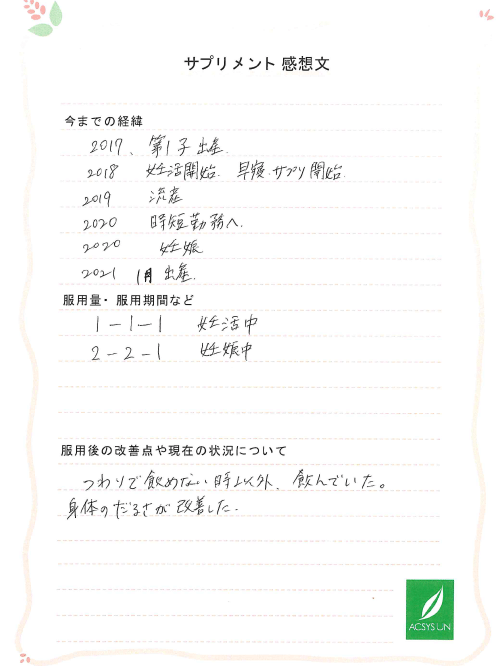 サプリメント 感想文
今までの経緯
2017、第1子出産.
2018 妊活開始. 早寝.サプリ開始.
2019 流産
2020 時短勤務へ.
2020 妊娠
2021 1月 出産.
服用量・服用期間など
1-1-1 妊活中
2-2-1 妊娠中
服用後の改善点や現在の状況について
つわりで飲めない時以外、飲んでいた。
身体のだるさが改善した.
ACSYSUN